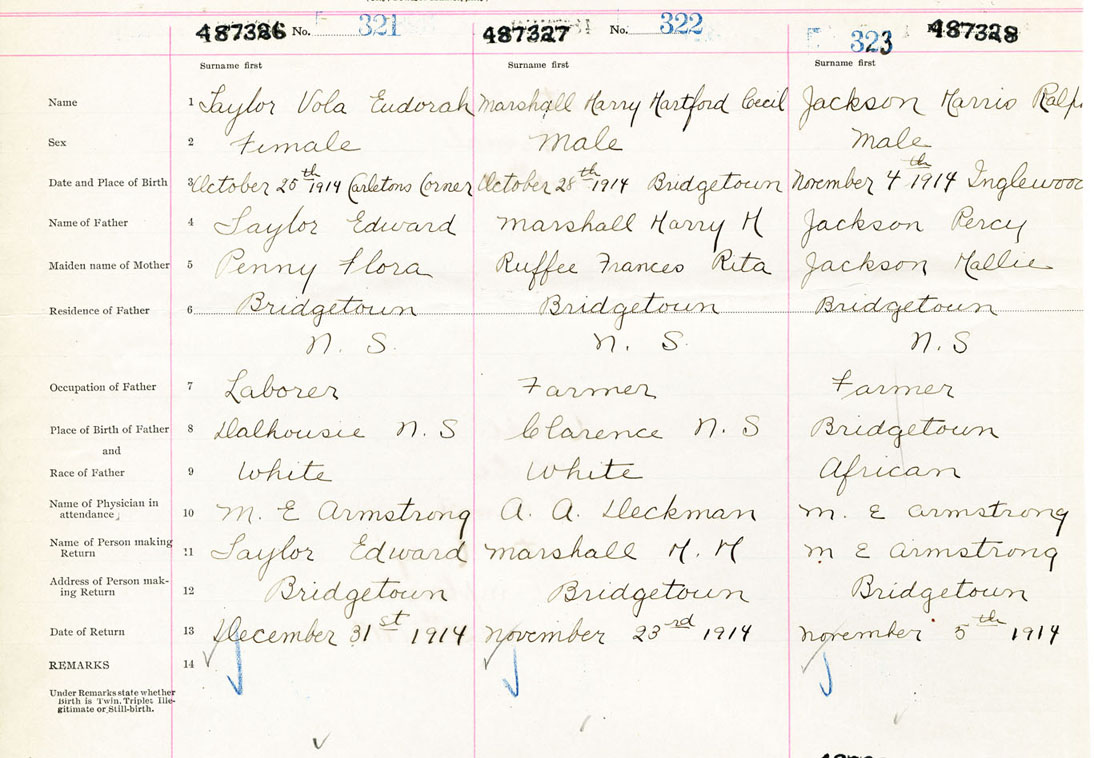 487326 No. 321 487327 No. 322 323 487328
Surname first Surname first Surname first
Name 1 Taylor Vola Eudorah Marshall Harry Hartford Cecil Jackson Harris Ralph
Sex 2 Female Male Male
Date and Place of Birth 3 October 25th 1914 Carletons Corner October 28th 1914 Bridgetown November 4th 1914 Inglewood
Name of Father 4 Taylor Edward Marshall Harry H Jackson Percy
Maiden name of Mother 5 Penny Flora Ruffee Frances Rita Jackson Hallie
Residence of Father 6 Bridgetown Bridgetown Bridgetown
N. S. N. S. N. S
Occupation of Father 7 Laborer Farmer Farmer
Place of Birth of Father 8 Dalhousie N. S Clarence N. S Bridgetown
and
Race of Father 9 White White African
Name of Physician in
attendance 10 M. E Armstrong A. A. Deckman M. E Armstrong
Name of Person making
Return 11 Taylor Edward Marshall H. H M E Armstrong
Address of Person mak-
ing Return 12 Bridgetown Bridgetown Bridgetown
Date of Return 13 December 31st 1914 November 23rd 1914 November 5th 1914
REMARKS 14
Under Remarks state whether
Birth is Twin, Triplet Ille-
gitimate or Still-birth.